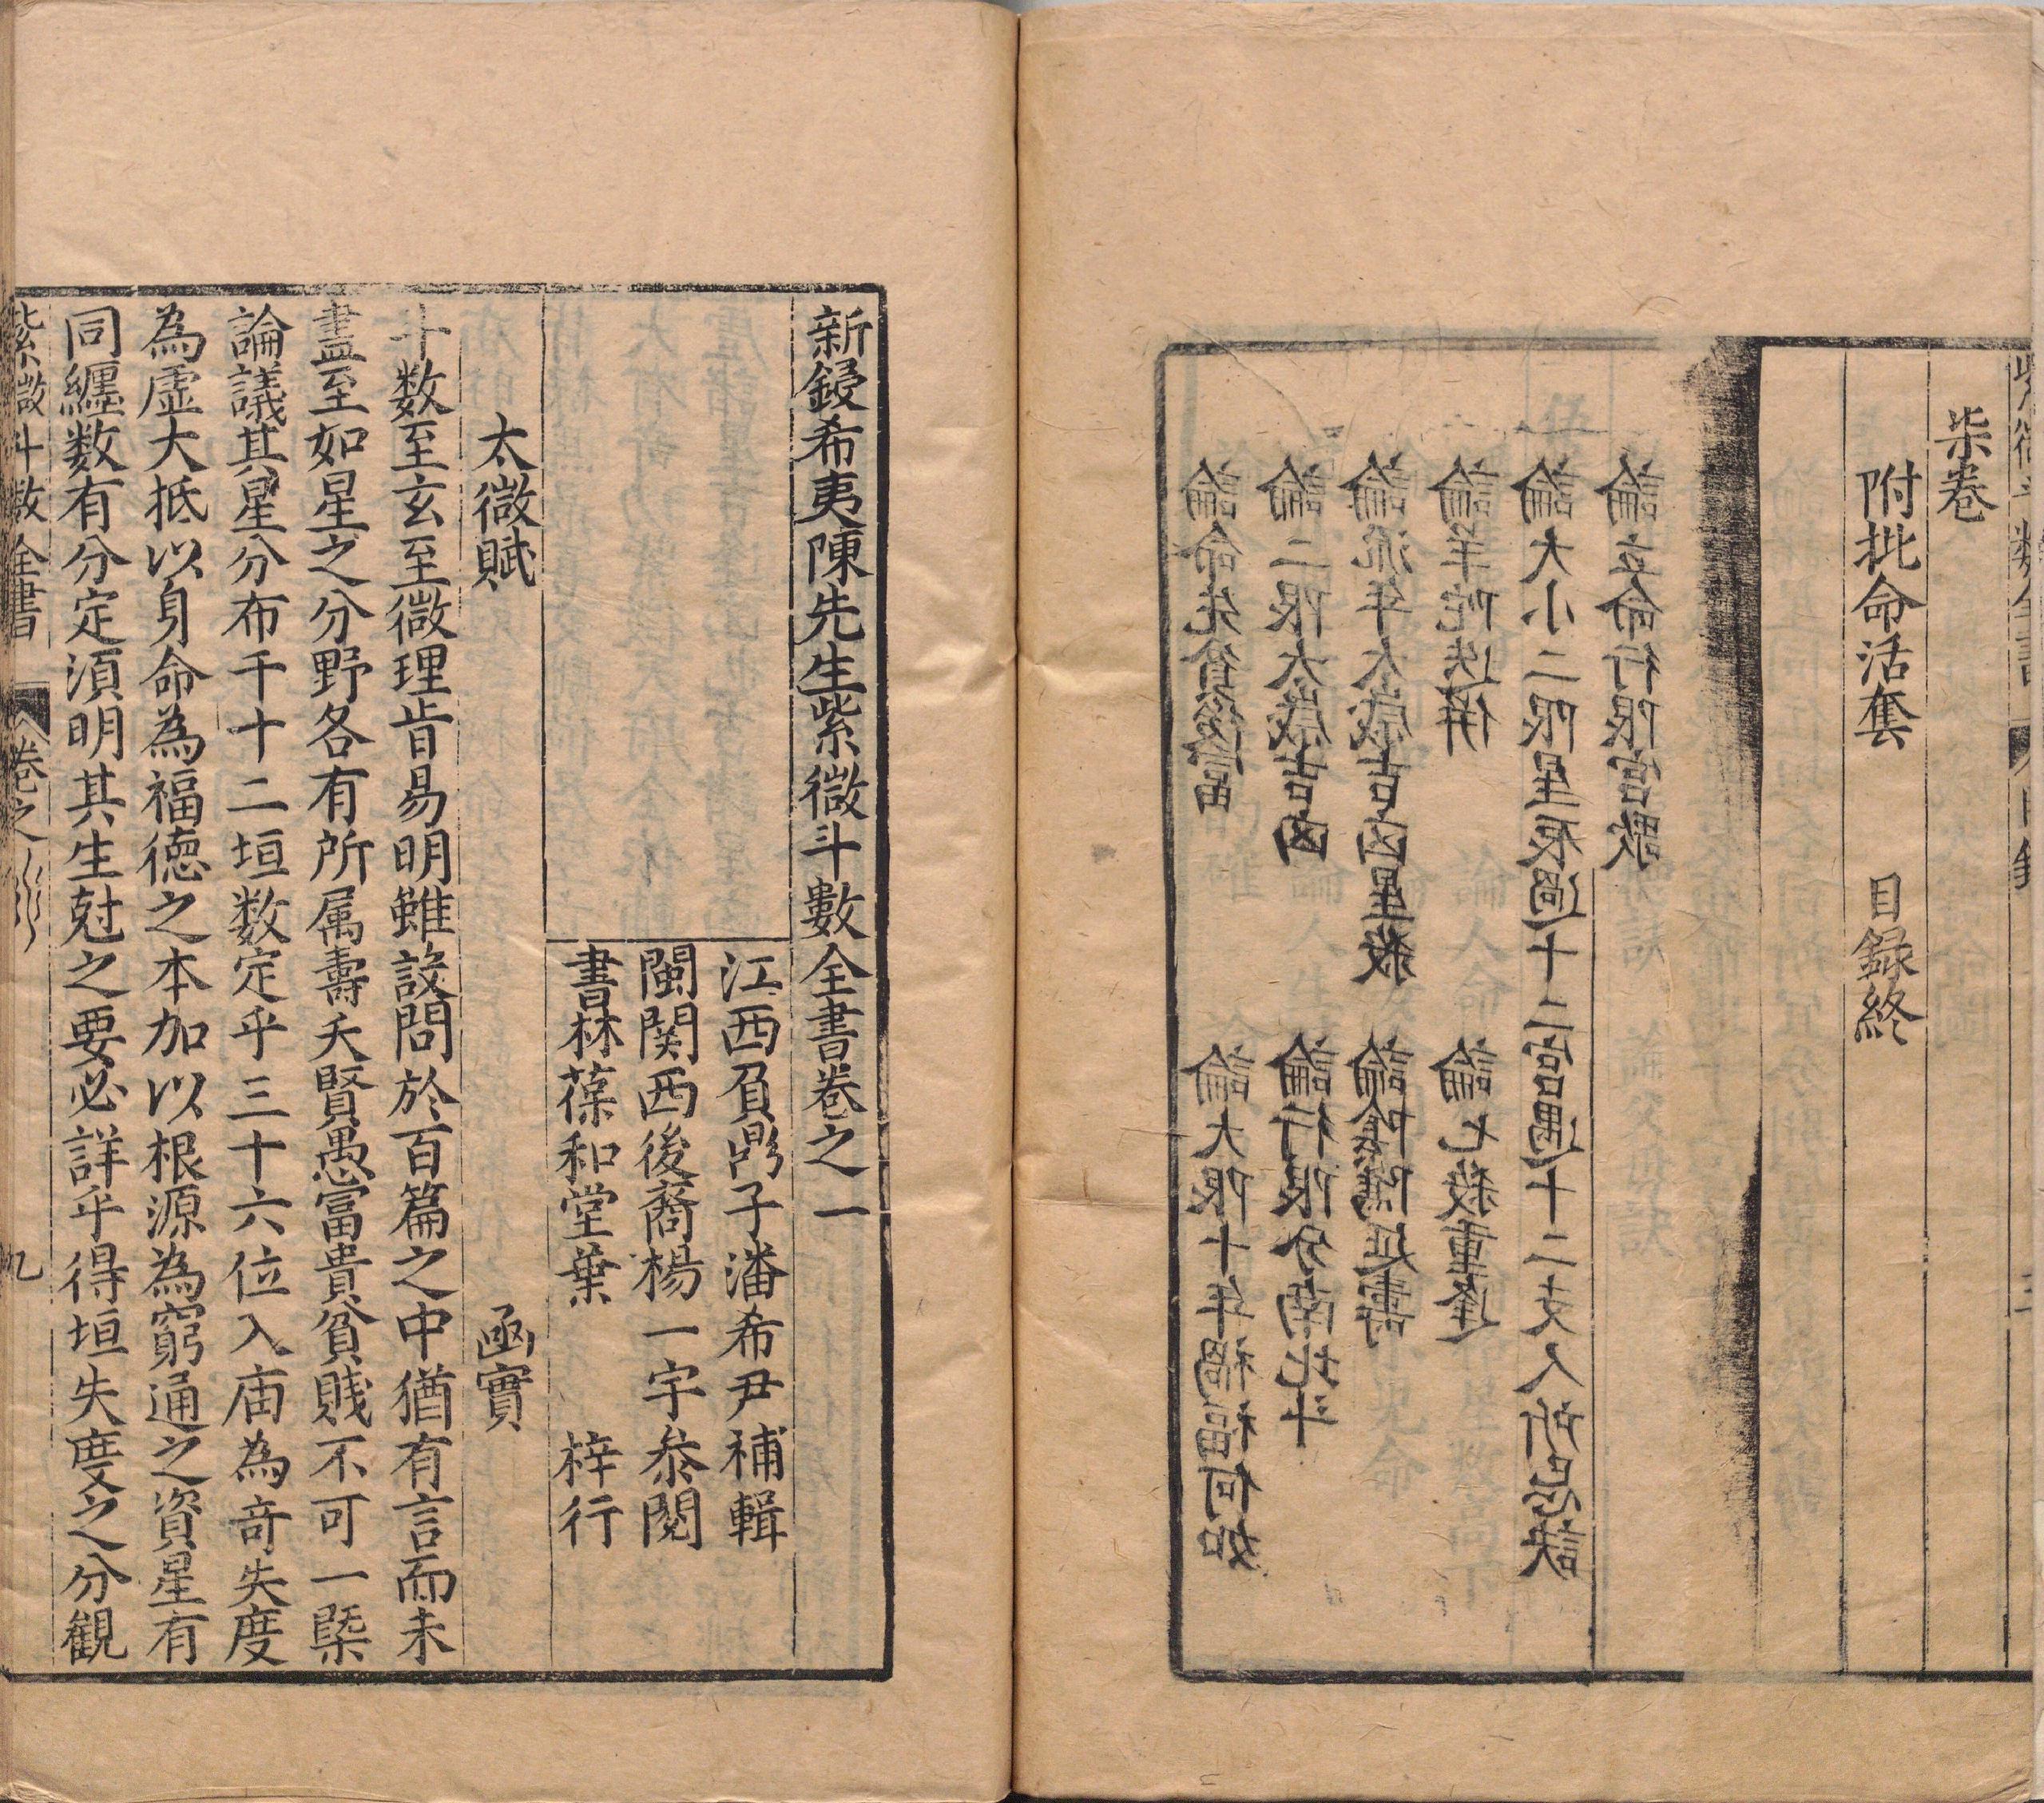 柒卷
附批命活套　目録終
論立命行限宮歌
論大小二限星辰過十二宮遇十二支人所忌訣
論羊陀迭併　論七殺重逢
論流年太歲吉凶星殺　論陰隲延壽
論二限太歲吉凶　論行限分南北斗
論命先貧後富　論大限十年禍福何如
新鋟希夷陳先生紫微斗數全書卷之一
江西負鼎子潘希尹補輯
閩関西後裔楊一宇叅閲
書林葆和堂葉　梓行
太微賦　函實
斗数至玄至微理㫖易明雖設問於百篇之中猶有言而未
盡至如星之分野各有所属壽夭賢愚富貴貧賤不可一槩
論議其星分布于十二垣数定乎三十六位入庙為竒失度
為虚大抵以身命為福徳之本加以根源為窮通之資星有
同纏数有分定湏明其生尅之要必詳乎得垣失度之分観
紫微斗数全書　卷之　九